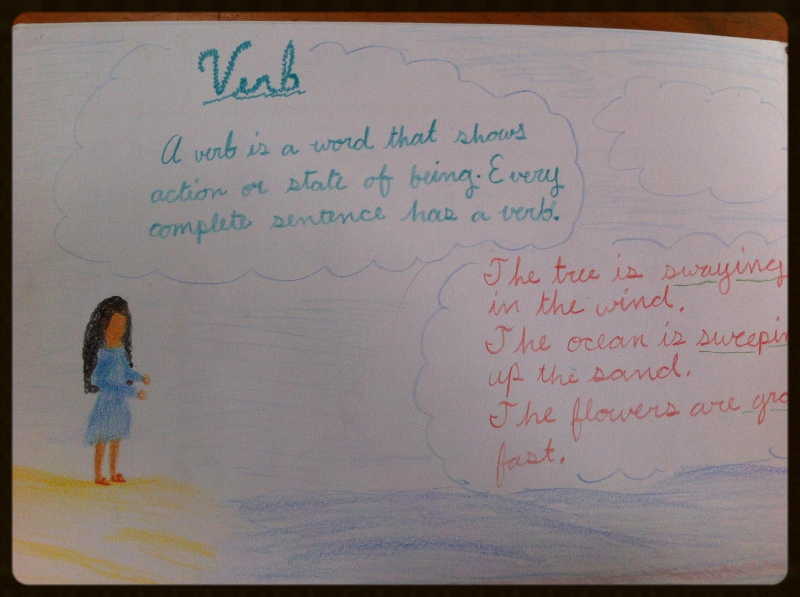 Verb
A verb is a word that shows
action or state of being. Every
complete sentence has a verb.
The tree is swaying
in the wind.
The ocean is sweepin
up the sand.
The flowers are gro
fast.